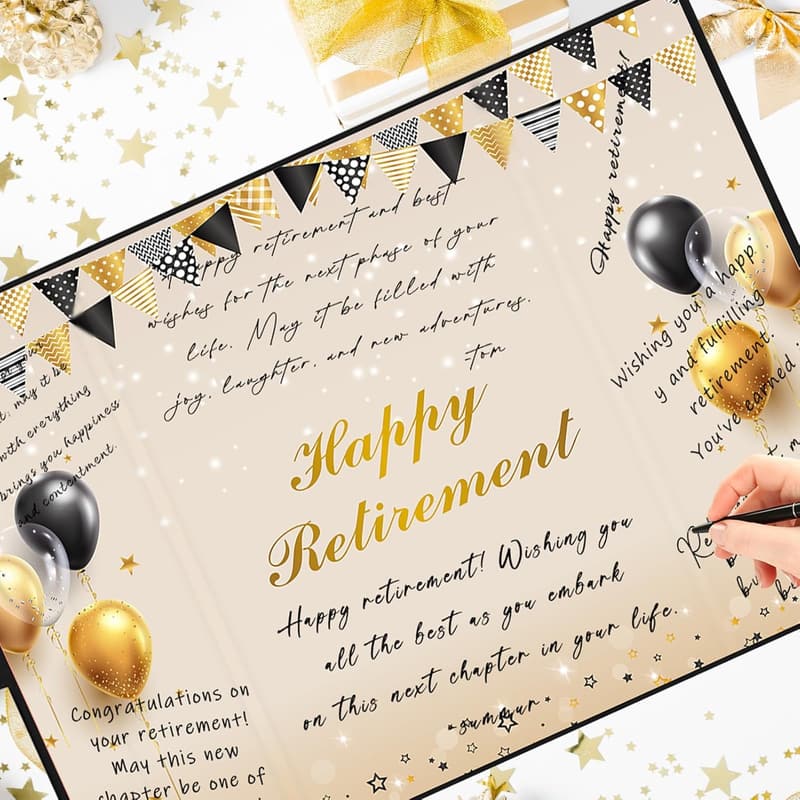 Happy retirement and best
wishes for the next phase of your
life. May it be filled with
joy, laughter, and new adventures.
Tom
Happy retirement!
Happy
Retirement
Happy retirement! Wishing you
all the best as you embark
on this next chapter in your life.
-summur-
may it be
with everything
brings you happiness
and contentment.
Congratulations on
your retirement!
May this new
chapter be one of
Wishing you a happ
y and fulfilling
retirement.
You've earned